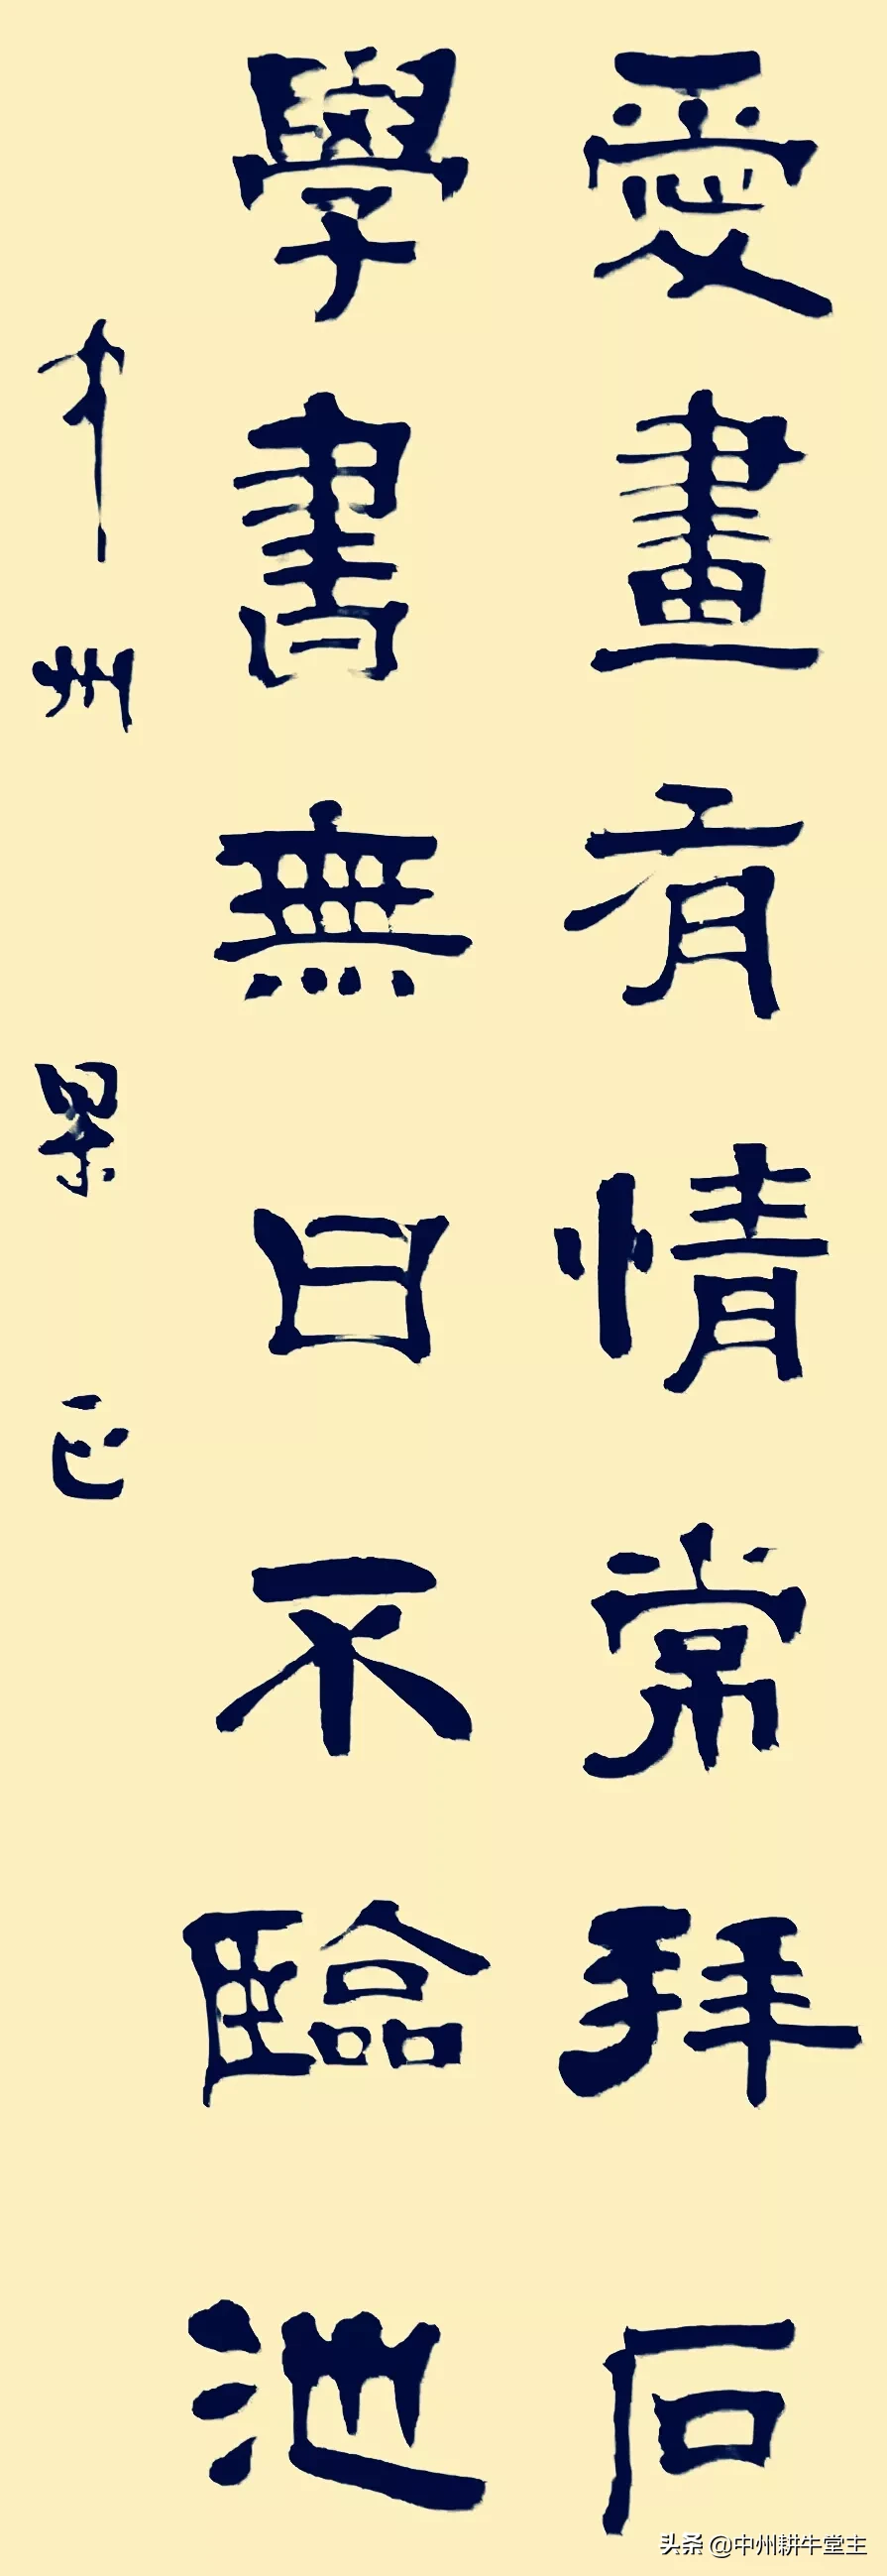 愛畫有情常拜石
學書無日不臨池
中州
頭條 @中州耕牛堂主